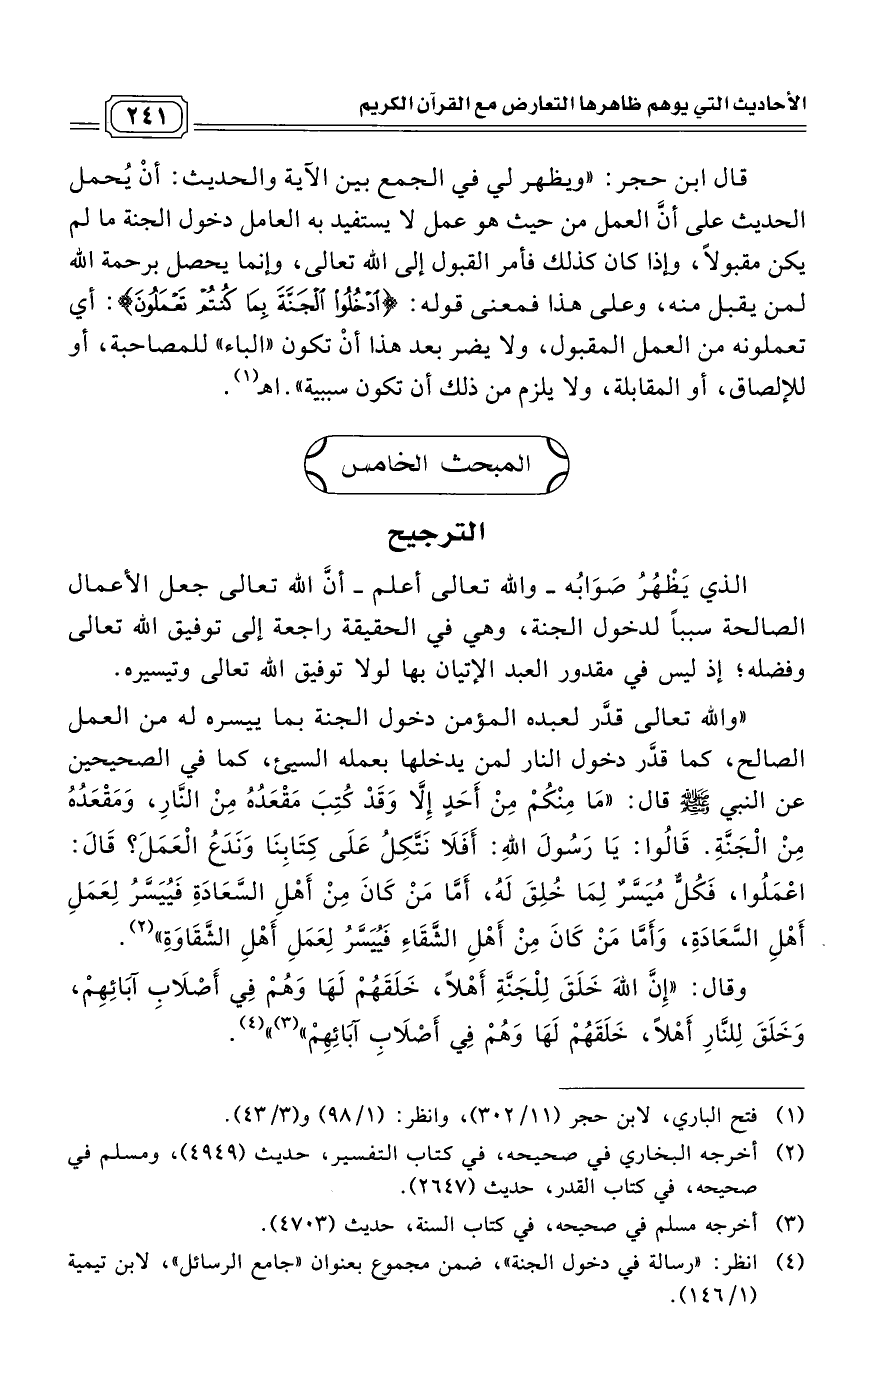 الأحاديث التي يوهم ظاهرها التعارض مع القرآن الكريم
٢٤١
قال ابن حجر: «ويظهر لي في الجمع بين الآية والحديث: أنْ يُحمل
الحديث على أنَّ العمل من حيث هو عمل لا يستفيد به العامل دخول الجنة ما لم
يكن مقبولاً، وإذا كان كذلك فأمر القبول إلى الله تعالى، وإنما يحصل برحمة الله
لمن يقبل منه، وعلى هذا فمعنى قوله: ﴿ٱدْخُلُوا۟ ٱلْجَنَّةَ بِمَا كُنتُمْ تَعْمَلُونَ﴾: أي
تعملونه من العمل المقبول، ولا يضر بعد هذا أنْ تكون «الباء» للمصاحبة، أو
للإلصاق، أو المقابلة، ولا يلزم من ذلك أن تكون سببية».اهـ(١).
المبحث الخامس
الترجيح
الذي يَظْهَرُ صَوَابُه - والله تعالى أعلم - أنَّ الله تعالى جعل الأعمال
الصالحة سبباً لدخول الجنة، وهي في الحقيقة راجعة إلى توفيق الله تعالى
وفضله؛ إذ ليس في مقدور العبد الإتيان بها لولا توفيق الله تعالى وتيسيره.
«والله تعالى قدَّر لعبده المؤمن دخول الجنة بما ييسره له من العمل
الصالح، كما قدَّر دخول النار لمن يدخلها بعمله السيئ، كما في الصحيحين
عن النبي ﷺ قال: «مَا مِنْكُمْ مِنْ أَحَدٍ إِلَّا وَقَدْ كُتِبَ مَقْعَدُهُ مِنَ النَّارِ، وَمَقْعَدُهُ
مِنَ الْجَنَّةِ. قَالُوا: يَا رَسُولَ اللهِ: أَفَلَا نَتَّكِلُ عَلَى كِتَابِنَا وَنَدَعُ الْعَمَلَ؟ قَالَ:
اعْمَلُوا، فَكُلٌّ مُيَسَّرٌ لِمَا خُلِقَ لَهُ، أَمَّا مَنْ كَانَ مِنْ أَهْلِ السَّعَادَةِ فَيُيَسَّرُ لِعَمَلِ
أَهْلِ السَّعَادَةِ، وَأَمَّا مَنْ كَانَ مِنْ أَهْلِ الشَّقَاءِ فَيُيَسَّرُ لِعَمَلِ أَهْلِ الشَّقَاوَةِ»(٢).
وقال: «إِنَّ اللهَ خَلَقَ لِلْجَنَّةِ أَهْلاً، خَلَقَهُمْ لَهَا وَهُمْ فِي أَصْلَابِ آبَائِهِمْ،
وَخَلَقَ لِلنَّارِ أَهْلاً، خَلَقَهُمْ لَهَا وَهُمْ فِي أَصْلَابِ آبَائِهِمْ»(٣)»(٤).
(١) فتح الباري، لابن حجر (٣٠٢/١١)، وانظر: (٩٨/١) و(٤٣/٣).
(٢) أخرجه البخاري في صحيحه، في كتاب التفسير، حديث (٤٩٤٩)، ومسلم في
صحيحه، في كتاب القدر، حديث (٢٦٤٧).
(٣) أخرجه مسلم في صحيحه، في كتاب السنة، حديث (٤٧٠٣).
(٤) انظر: «رسالة في دخول الجنة»، ضمن مجموع بعنوان «جامع الرسائل»، لابن تيمية
(١٤٦/١).